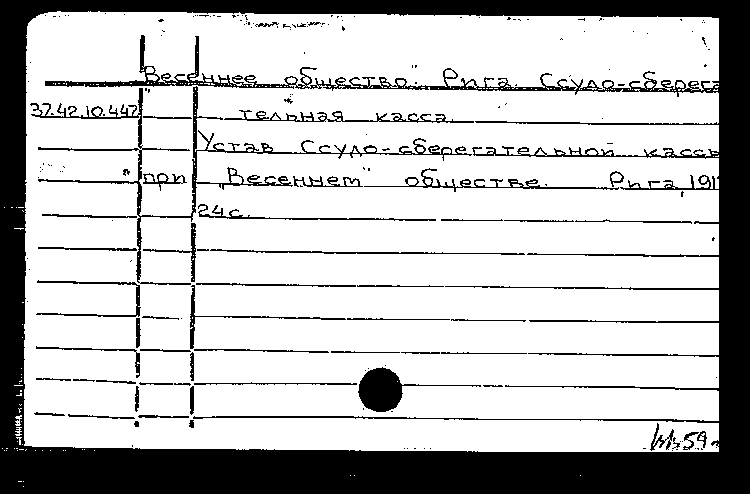 "Весеннее общество". Рига. Ссудо-сберега
37.42.10.447 тельная касса.
Устав Ссудо-сберегательной кассы
при "Весеннем" обществе. Рига, 191
24 с.